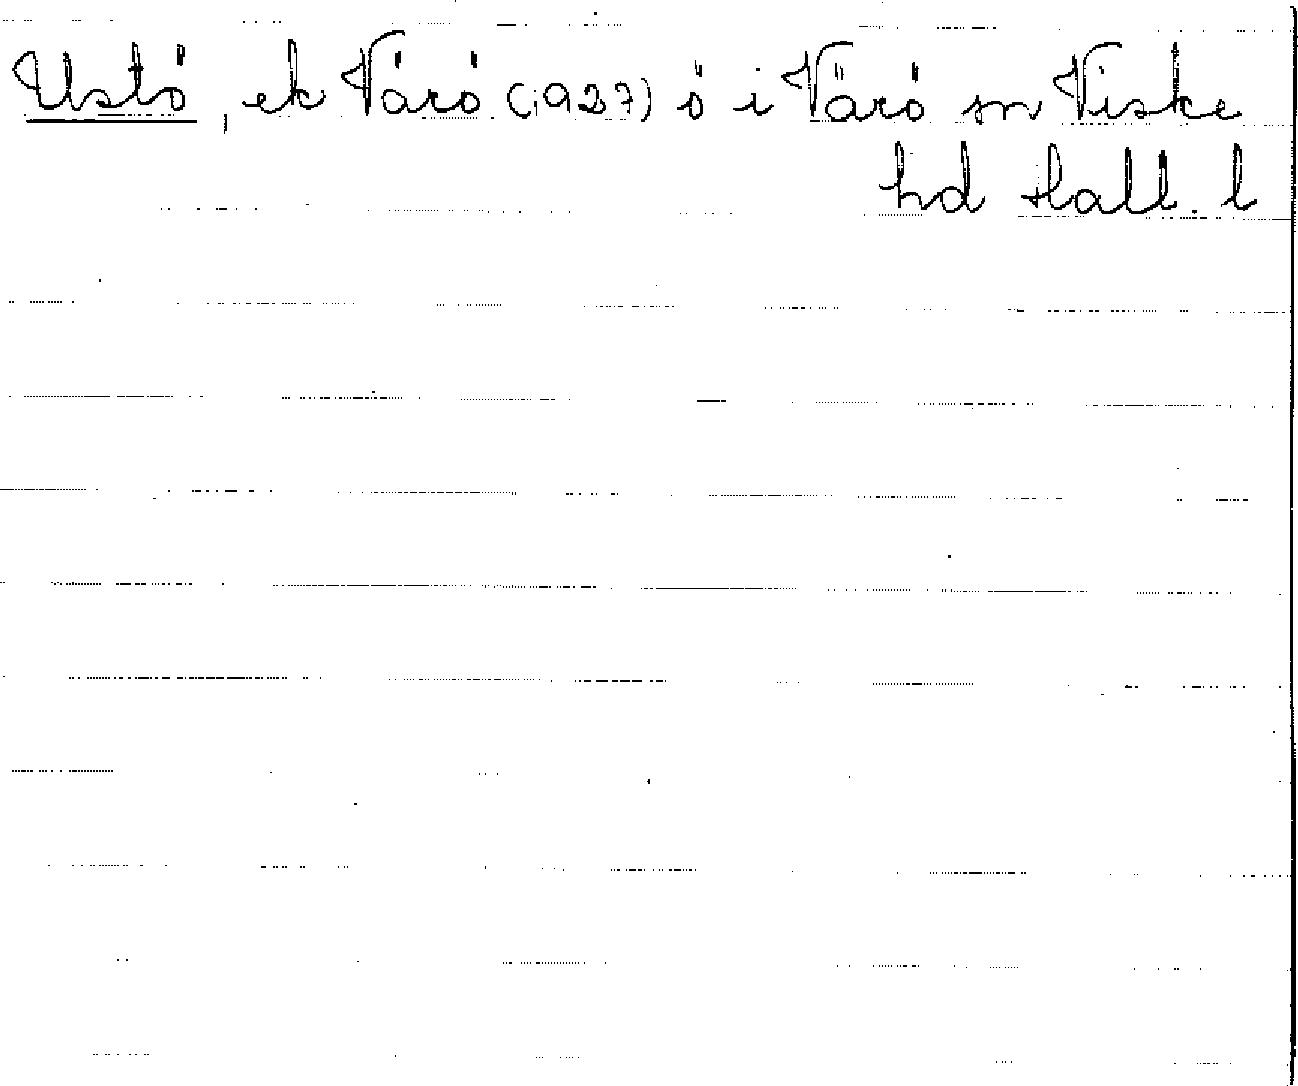 Ustö, ek Värö (1937) ö i Värö sn Viske
hd Hall. l